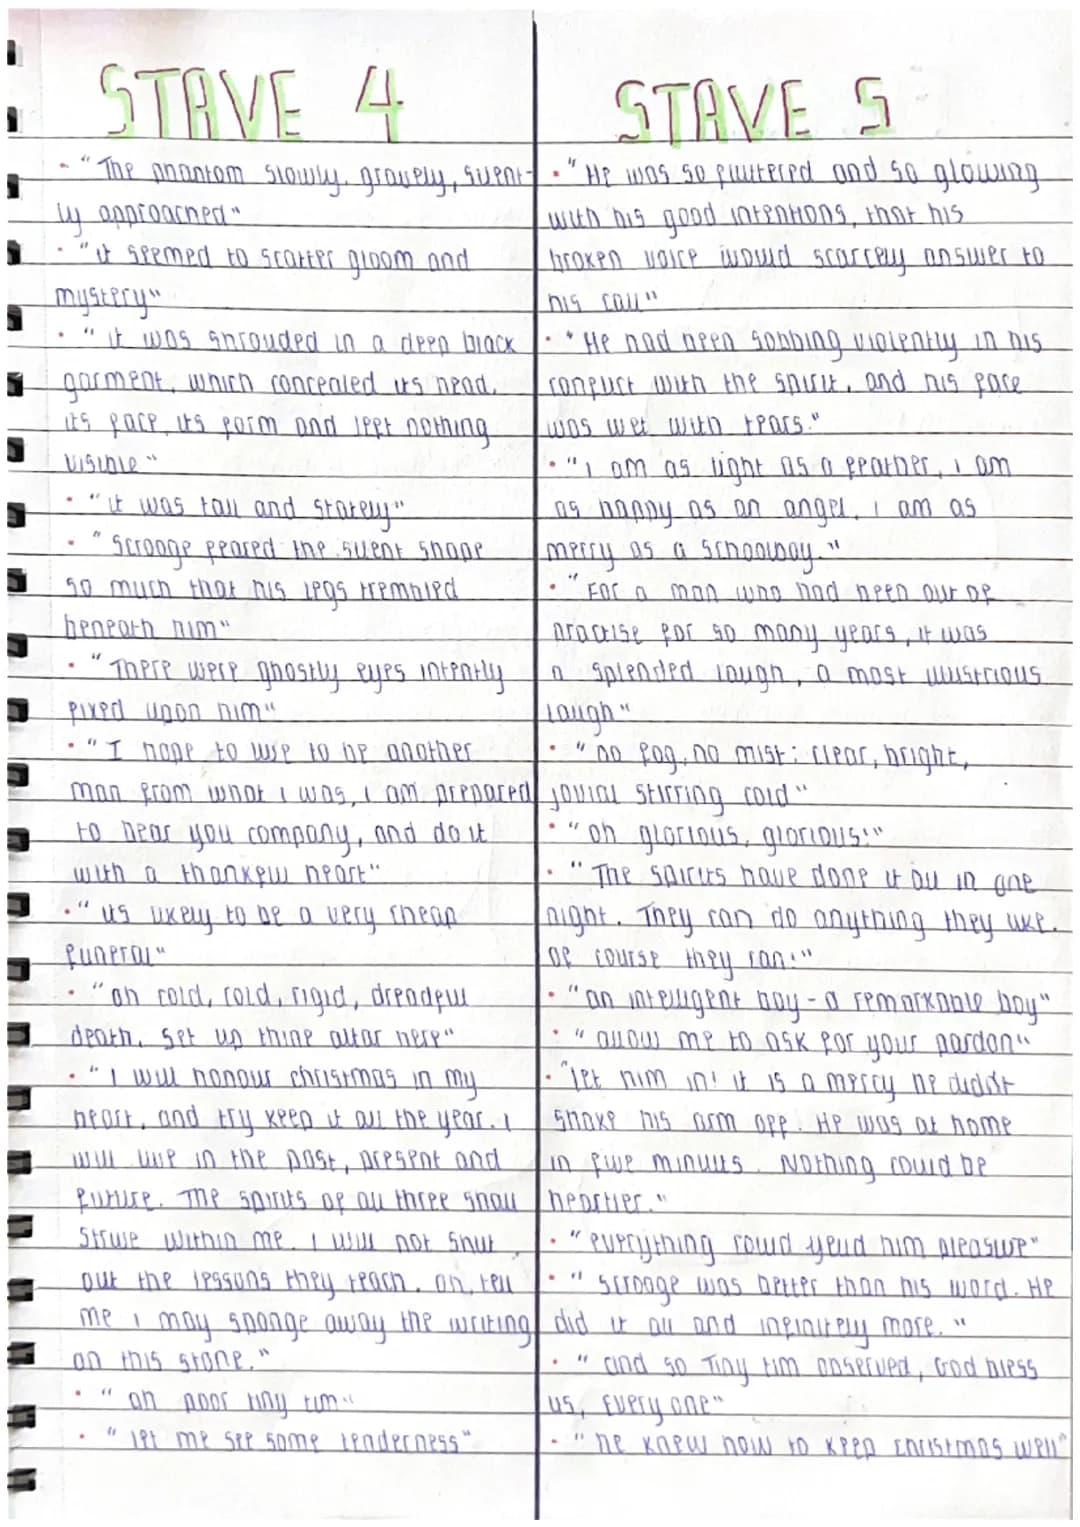 STAVE 4
- "The phantom slowly, gravely, silent-
ly approached"
· "it seemed to scatter gloom and
mystery"
· "it was shrouded in a deep black
garment, which concealed its head,
its face, its form and left nothing
visible"
· "it was tall and stately"
· "Scrooge feared the silent shape
so much that his legs trembled
beneath him"
· "There were ghostly eyes intently
fixed upon him"
· "I hope to live to be another
man from what i was, i am prepared
to bear you company, and do it
with a thankful heart"
· "its likely to be a very cheap
funeral"
· "oh cold, cold, rigid, dreadful
death, set up thine altar here"
· "I will honour christmas in my
heart, and try keep it all the year. i
will live in the past, present and
future. The spirits of all three shall
strive within me. I will not shut
out the lessons they teach. oh, tell
me i may sponge away the writing
on this stone."
· "oh poor tiny tim"
· "let me see some tenderness"
STAVE 5
· "He was so fluttered and so glowing
with his good intentions, that his
broken voice would scarcely answer to
his call"
· "He had been sobbing violently in his
conflict with the spirit, and his face
was wet with tears."
· "i am as light as a feather, i am
as happy as an angel, i am as
merry as a schoolboy."
· "For a man who had been out of
practise for so many years, it was
a splended laugh, a most illustrious
laugh"
· "no fog, no mist; clear, bright,
jovial stirring cold"
· "oh glorious, glorious!"
· "The spirits have done it all in one
night. They can do anything they like.
of course they can!"
· "an intelligent boy - a remarkable boy"
· "allow me to ask for your pardon"
· "let him in! it is a mercy he didn't
shake his arm off. He was at home
in five minuits. Nothing could be
heartier."
· "everything could yeild him pleasure"
· "Scrooge was better than his word. He
did it all and infinitely more."
· "and so Tiny tim observed, God bless
us, Every one"
· "he knew how to keep christmas well"